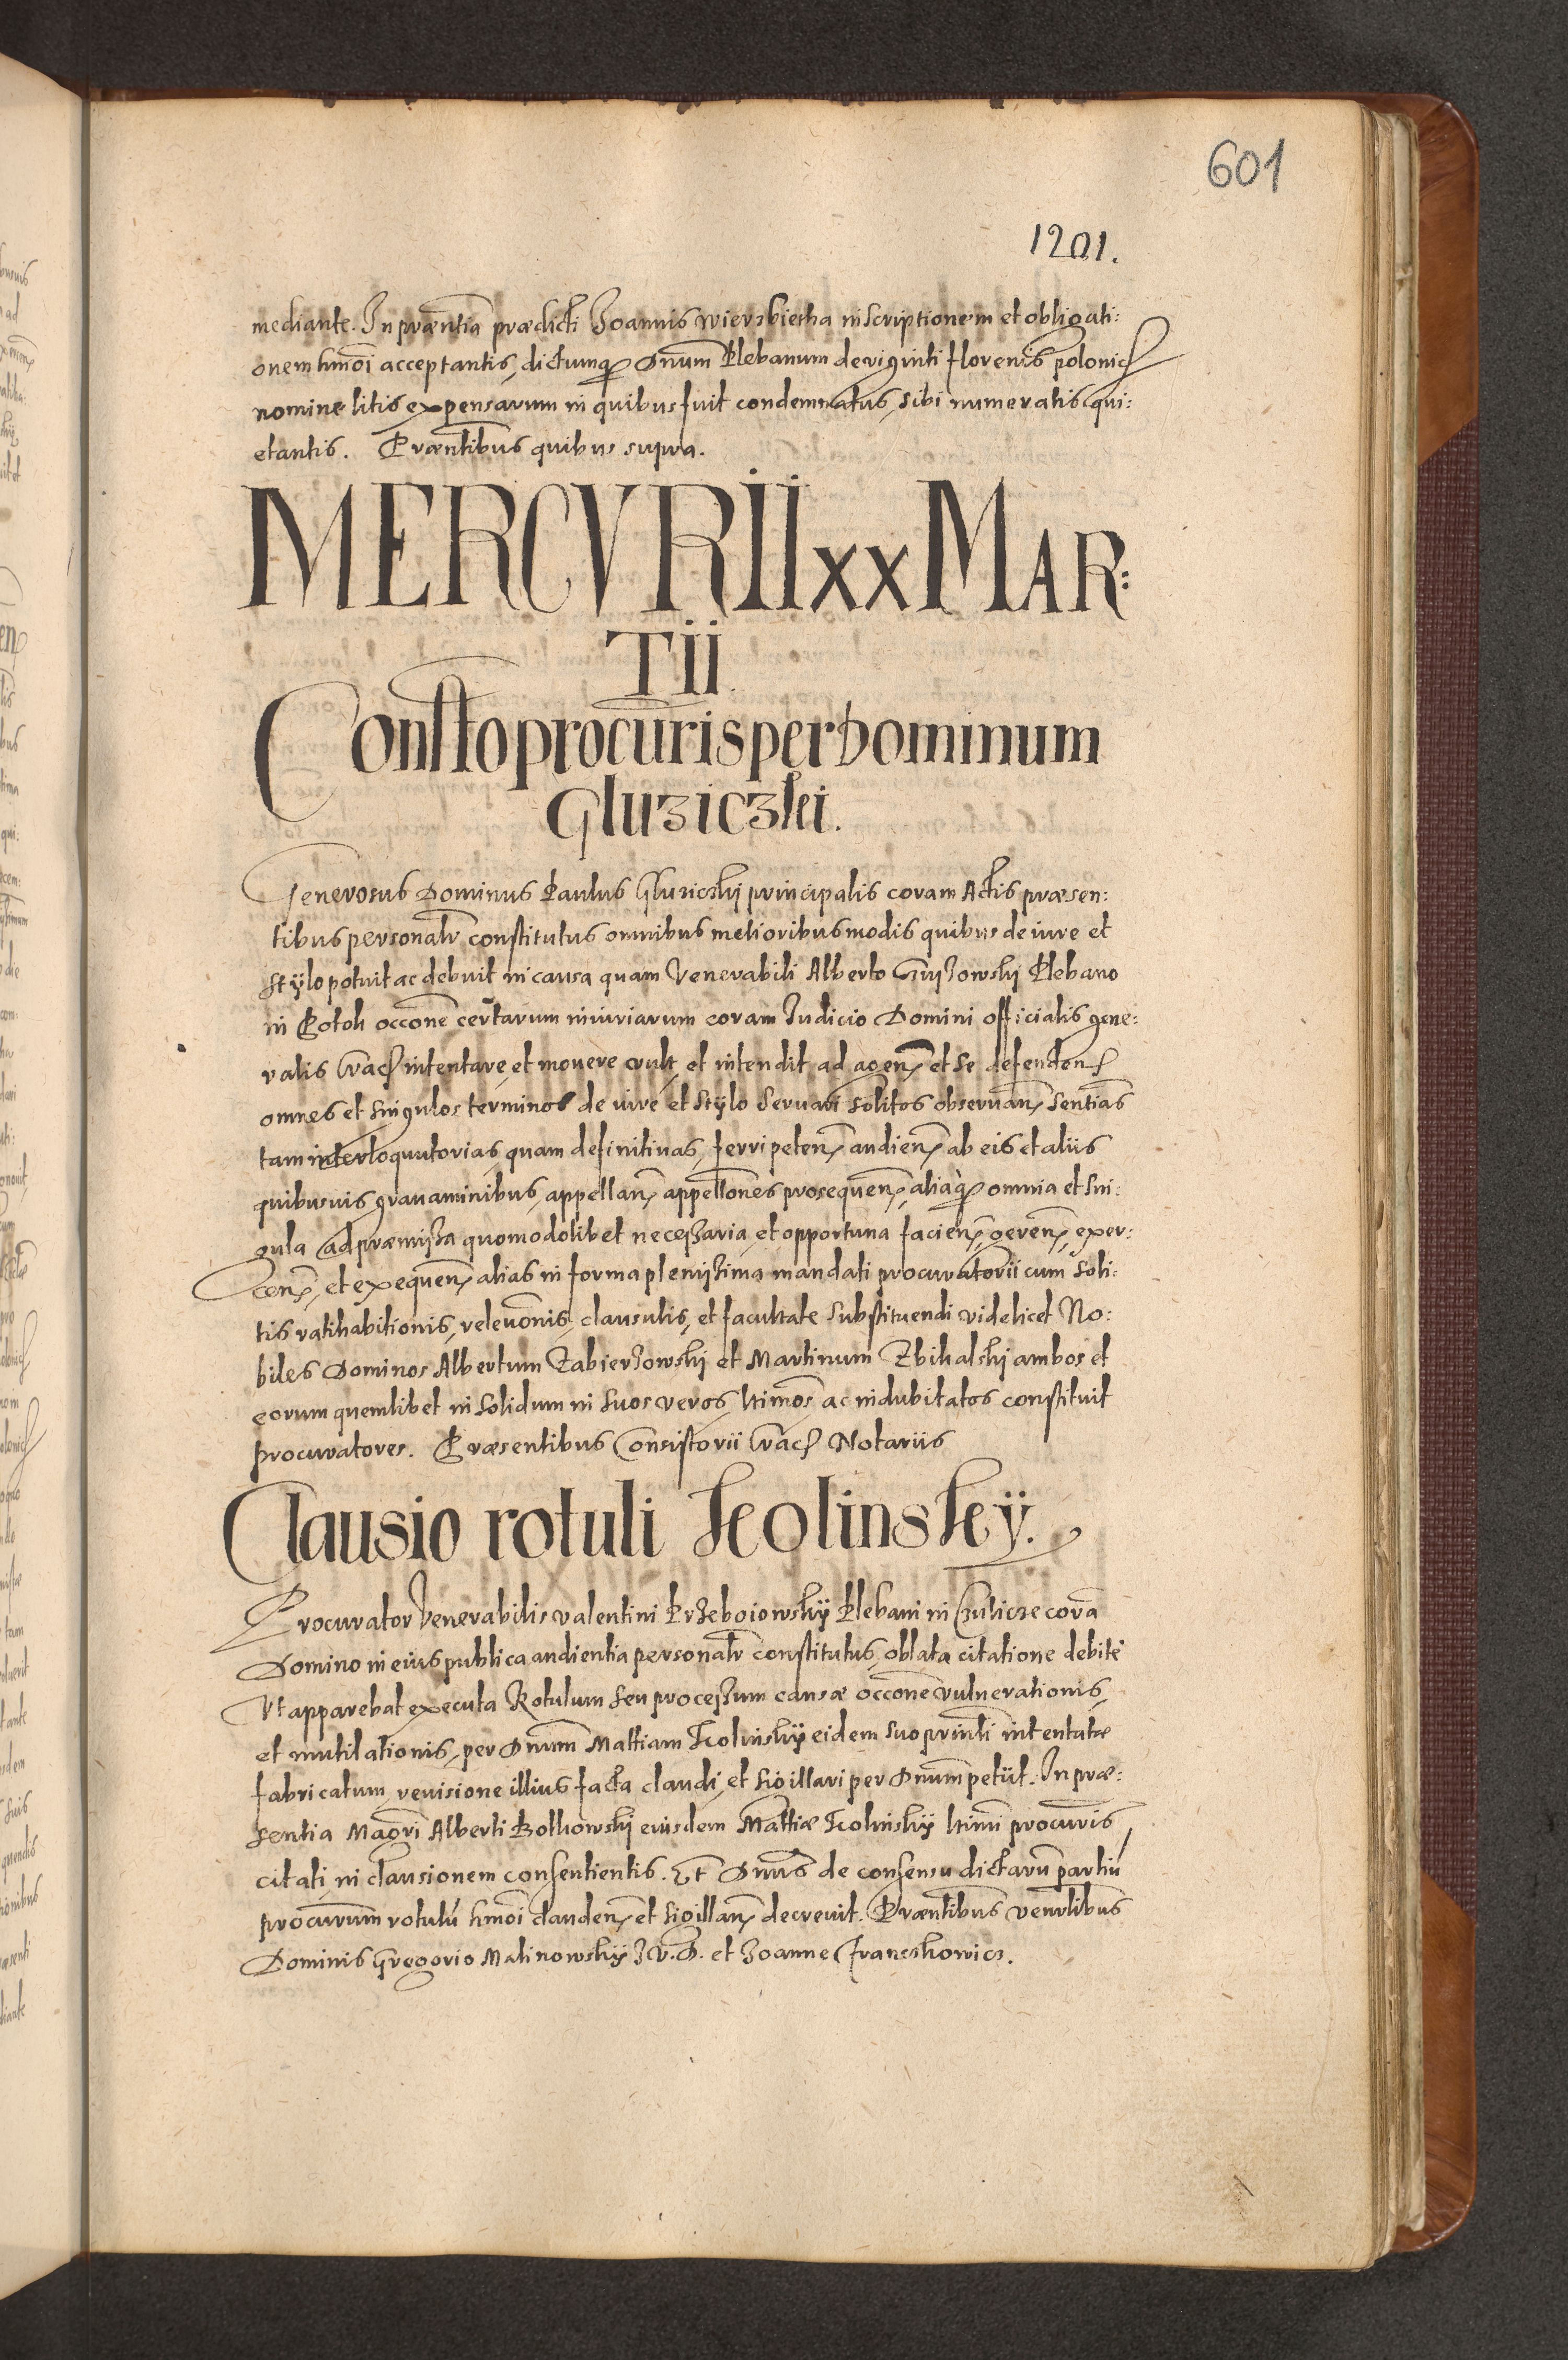 601
1201.
mediante. In præntia prædicti Joannis Wierzbietha inscriptionem et obligati:
onem hmoi acceptantis, dictumq₃ Dnum Plebanum de viginti florenis polonic
nomine litis expensarum in quibus fuit condemnatus, sibi numeratis qui:
etantis. Præntibus quibus supra.
MERCVRII XX MAR:
TII.
Constto procuris per Dominum
Gluziczki.
Generosus Dominus Paulus Gluziczkij principalis coram Actis præsen:
tibus personalr constitutus omnibus melioribus modis quibus de iure et
stylo potuit ac debuit in causa quam Venerabili Alberto Plebano
in Potok occone certarum iniuriarum coram Iudicio Domini officialis gene:
ralis Crac intentare et mouere vult, et intendit ad agen et se defenden
omnes et singulos terminos de iure et stylo seruari solitos obseruan, sentias
tam interloquutorias, quam definitiuas, ferri peten audien ab eis et aliis
quibusuis grauaminibus, appellan appellones prosequen, aliaq₃ omnia et sin:
gula ad præmissa quomodolibet necessaria et opportuna facien, geren, exer:
cen, et exequen alias in forma plenissima mandati procuratorii cum soli:
tis ratihabitionis, releuonis, clausulis, et facultate substituendi videlicet No:
biles Dominos Albertum Zabierzowski et Martinum Zbihalski ambos et
eorum quemlibet in solidum in suos veros, ltimos ac indubitatos constituit
procuratores. Præsentibus Consistorii Crac Notariis
Clausio rotuli Kolinskeÿ.
Procurator Venerabilis Valentini Przeboiowskÿ Plebani in Czulicze cora
Domino in eius publica audientia personalr constitutus, oblata citatione debite
Vt apparebat executa Rotulum seu processum causæ occone vulnerationis,
et mutilationis, per Dnum Mattiam Kolinskÿ eidem suo prinli intentatæ
fabricatum, reuisione illius facta claudi, et sigillari per Dnum petiit. In præ:
sentia Magri Alberti Bolkowski eiusdem Mattiæ Kolinskÿ ltimi procuris,
citati, in clausionem consentientis. Et Dnus de consensu dictaru partiu
procurum rotulu hmoi clauden et sigillan decreuit. Præntibus venrlibus
Dominis Gregorio Malinowskÿ I.V.D. et Joanne Franczkowicz.